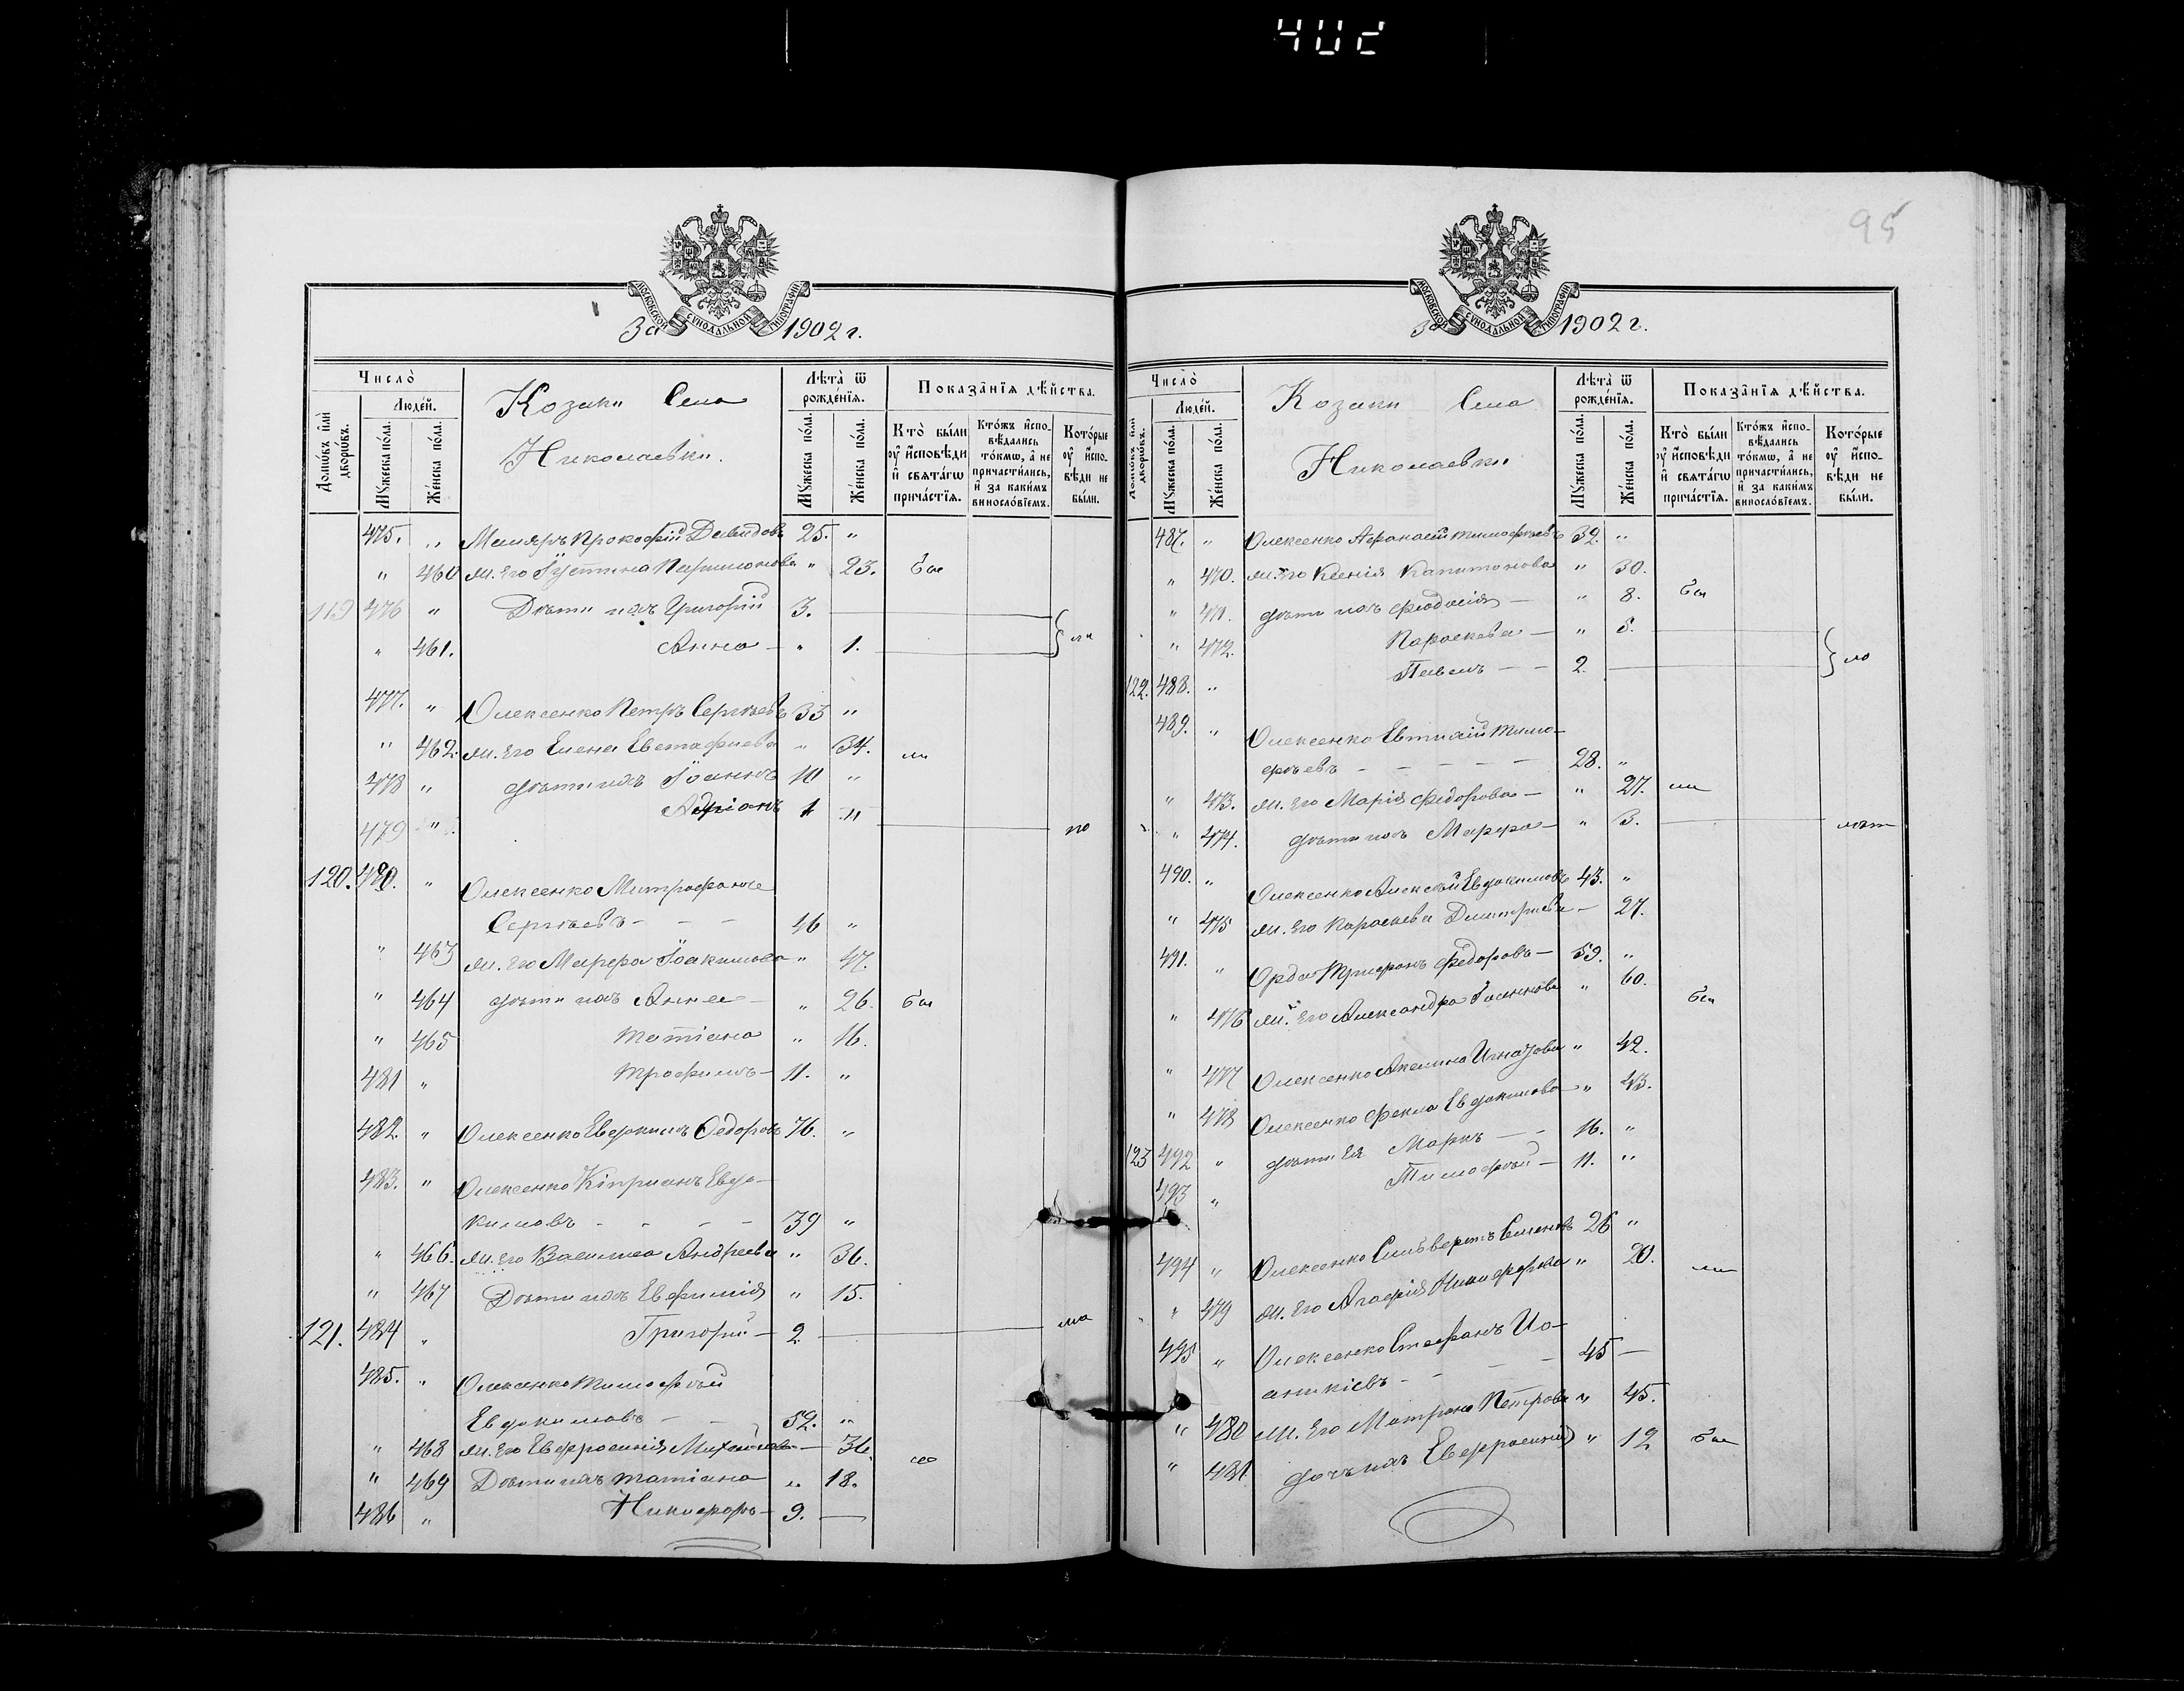 402
МОСКОВСКОЙ СУНОДАЛЬНОЙ ТИПОГРАФІИ
За 1902 г.
Число̀
Люде́й.
Домѡ́въ и҆лѝ дворѡ́въ.
Мꙋ́жеска по́ла.
Же́нска по́ла.
Козаки Села
Николаевки.
Лѣта̀ ѿ рожде́нїѧ.
Мꙋ́жеска по́ла.
Же́нска по́ла.
Показа̑нїѧ дѣ́йства.
Кто̀ бы́ли оу҆ и҆сповѣ́ди и҆ свѧта́гѡ прича́стїѧ.
Кто́жъ и҆спо-вѣ́дались то́кмѡ, а҆ не причасти́лись, и҆ за каки́мъ винословїемъ.
Кото́рые оу҆ и҆спо-вѣ́ди не бы́ли.
475. " Маляръ Прокофій Давидовъ 25. "
" 460 ж. его Іустина Парѳимонова " 23. бы
119 476 " Дѣти ихъ Григорій 3.
" 461. Анна - " 1.
477. " Олексенко Петръ Сергѣевъ 33 "
" 462. ж. его Елена Евстафиева " 34.
478 " дѣти ихъ Іоаннъ 10 "
479 " Адріанъ 1 "
120. 480. " Олексенко Митрофанъ
Сергѣевъ - - - 46 "
" 463 ж. его Марфа Іоакимова " 47.
" 464 дѣти ихъ Анна - " 26. бы
" 465 Татіана " 16.
481 " Трофимъ - 11. "
482. " Олексенко Евдокимъ Ѳедоровъ 76. "
483. " Олексенко Кіпріанъ Евдо-
кимовъ - - - - 39 "
" 466. ж. его Василиса Андреева " 36.
" 467 Дѣти ихъ Евфимія " 15.
121. 484 " Григорій - 2
485. " Олексенко Тимофѣй
Евдокимовъ - - 52. "
" 468 ж. его Евфросинія Михайлова - 36.
" 469 Дѣти ихъ Татіана " 18.
486 " Никифоръ - 9. -
95
МОСКОВСКОЙ СУНОДАЛЬНОЙ ТИПОГРАФІИ
За 1902 г.
Число̀
Люде́й.
Домѡ́въ и҆лѝ дворѡ́въ.
Мꙋ́жеска по́ла.
Же́нска по́ла.
Козаки Села
Николаевки
Лѣта̀ ѿ рожде́нїѧ.
Мꙋ́жеска по́ла.
Же́нска по́ла.
Показа̑нїѧ дѣ́йства.
Кто̀ бы́ли оу҆ и҆сповѣ́ди и҆ свѧта́гѡ прича́стїѧ.
Кто́жъ и҆спо-вѣ́дались то́кмѡ, а҆ не причасти́лись, и҆ за каки́мъ винословїемъ.
Кото́рые оу҆ и҆спо-вѣ́ди не бы́ли.
487. " Олексенко Афанасій Тимофѣевъ 32. "
" 470. ж. его Ксенія Капитонова " 30.
" 471. дѣти ихъ Феодосія - " 8. бы
" 472. Параскева - " 5.
122. 488. " Павелъ - - 2.
489. " Олексенко Евтихій Тимо-
фѣевъ - - - - - 28. "
" 473. ж. его Марія Федорова - " 27.
" 474. дѣти ихъ Марфа - " 3.
490. " Олексенко Алексѣй Евдокимовъ 43. "
" 475 ж. его Параскева Димитриева - 27.
491. " Орда Трифонъ Федоровъ - 59. "
" 476 ж. его Александра Іоаннова " 60. бы
" 477 Олексенко Акилина Игнатова " 42.
" 478 Олексенко Фекла Евдокимова - " 43.
123 492 " дѣти ея Маркъ - - 16. "
493 " Тимофѣй - 11. "
494 " Олексенко Сильверстъ Семеновъ 26 "
" 479 ж. его Агафія Никифорова " 20.
495 " Олексенко Стефанъ Ио-
аникіевъ - - - - 45 -
" 480 ж. его Матрона Петрова " 45.
" 481 дочь ихъ Евфросинія " 12 бы